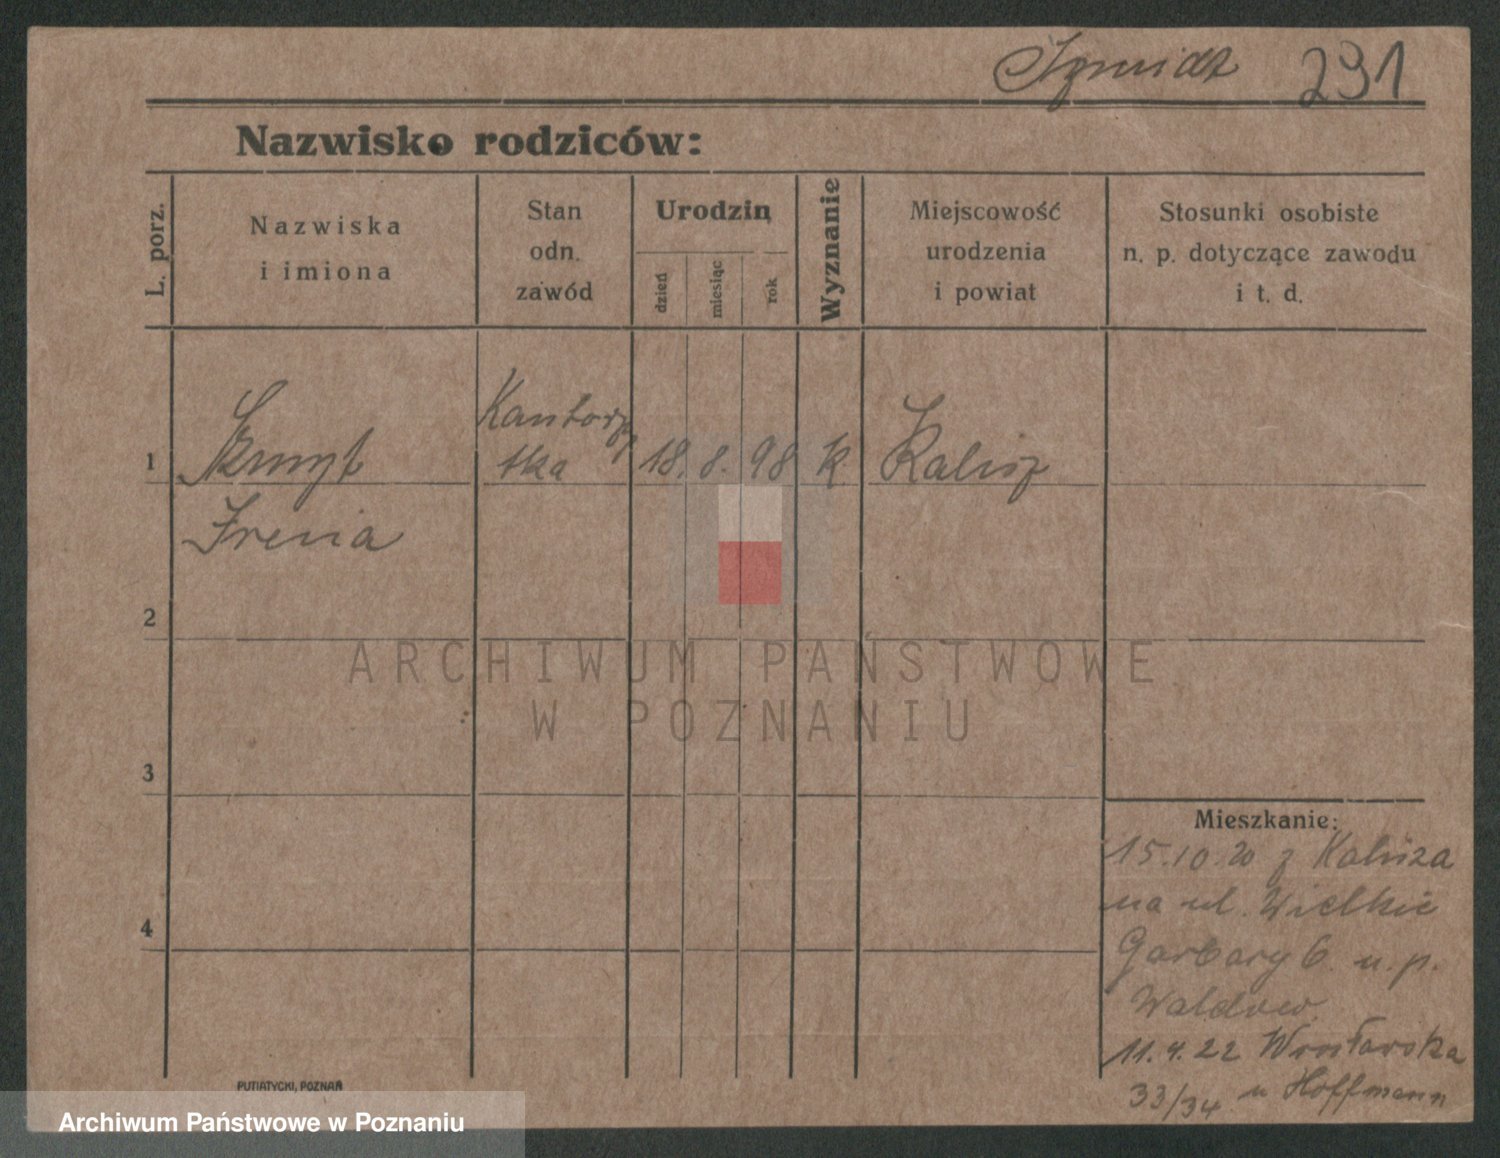 Szmidt 291
Nazwisko rodziców:
L. porz.
Nazwiska
i imiona
Stan
odn.
zawód
Urodzin
dzień
miesiąc
rok
Wyznanie
Miejscowość
urodzenia
i powiat
Stosunki osobiste
n. p. dotyczące zawodu
i t. d.
1
Szmyt
Kantorzy
stka
18. 8. 98
k.
Kalisz
Irena
2
3
4
Mieszkanie:
15.10.20 z Kalisza
na ul. Wielkie
Garbary 6. u. p.
11.4.22 Wrocławska
33/34 u Hoffmann
PUTIATYCKI, POZNAŃ
ARCHIWUM PAŃSTWOWE
W POZNANIU
Archiwum Państwowe w Poznaniu